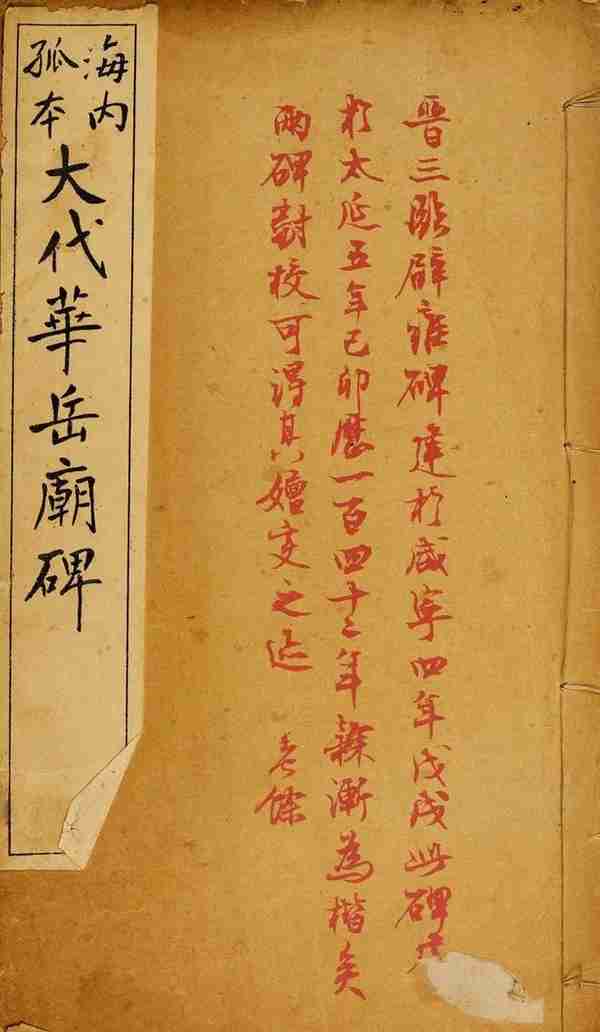 晉三臨辟雍碑建於咸寧四年戊戌此碑
於太延五年己卯歷一百四十二年隸漸為楷矣
兩碑對校可得其嬗变之迹
海内
孤本
大代華岳廟碑